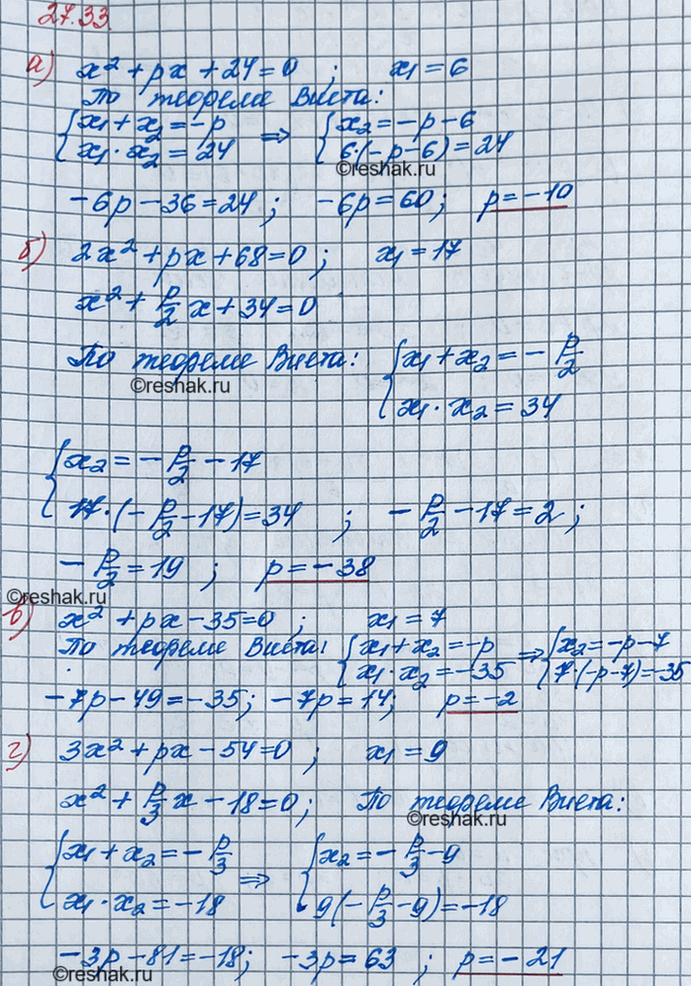 27.33.
а) x² + px + 24 = 0 ; x₁ = 6
По теореме Виета:
{ x₁ + x₂ = -p ⇒ { x₂ = -p - 6
{ x₁ · x₂ = 24 { 6·(-p-6) = 24
©reshak.ru
-6p - 36 = 24 ; -6p = 60 ; p = -10
б) 2x² + px + 68 = 0 ; x₁ = 17
x² + p/2 x + 34 = 0
По теореме Виета: { x₁ + x₂ = - p/2
©reshak.ru
{ x₁ · x₂ = 34
{ x₂ = - p/2 - 17
{ 17·(- p/2 - 17) = 34 ; - p/2 - 17 = 2 ;
- p/2 = 19 ; p = -38
©reshak.ru
в) x² + px - 35 = 0 ; x₁ = 7
По теореме Виета: { x₁ + x₂ = -p ⇒ { x₂ = -p - 7
{ x₁ · x₂ = -35 { 7·(-p-7) = -35
-7p - 49 = -35 ; -7p = 14 ; p = -2
г) 3x² + px - 54 = 0 ; x₁ = 9
x² + p/3 x - 18 = 0 ; По теореме Виета:
©reshak.ru
{ x₁ + x₂ = - p/3 ⇒ { x₂ = - p/3 - 9
{ x₁ · x₂ = -18 { 9(- p/3 - 9) = -18
-3p - 81 = -18 ; -3p = 63 ; p = -21
©reshak.ru